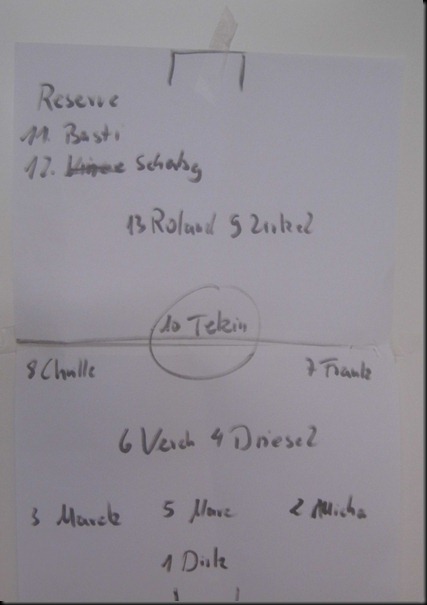 Reserve
11. Basti
12. Schatzg
13 Roland 9 Zirkel
10 Tekin
8 Chulle 7 Frank
6 Verch 4 Driesel
3 Marek 5 Marc 2 Micha
1 Dirk